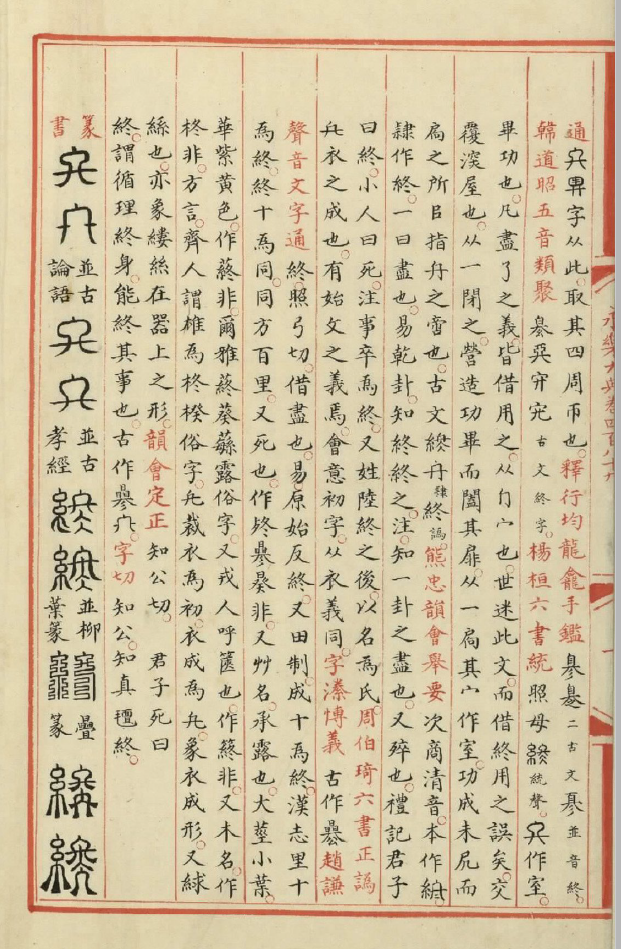 通。字从此。取其四周帀也。釋行均龍龕手鑑 二古文並音終。
韓道昭五音類聚 古文終字。楊桓六書統 照母統聲。作室
畢功也。凡盡了之義。皆借用之。从冂宀也。世迷此文而借終用之誤矣。交
覆深屋也。从一閉之。營造功畢而闔其扉。从一扃其宀作室。功成未凥而
扃之所㠯指之也。古文隸終譌。熊忠韻會舉要 次商清音。本作
隸作終。一曰盡也。易乾卦。知終終之。注。知一卦之盡也。又殚也。禮記君子
曰終。小人曰死。注事卒為終。又姓陸終之後。以名為氏。周伯琦六書正譌
衣之成也。有始文之義焉。會意初字。从衣義同。字溱博義 古作㬥。趙謙
聲音文字通 終。照弓切。借盡也。易原始反終。又田制。成十為終。漢志里十
為終。終十為同。同方百里。又死也。作非。又艸名。承露也。大莖小葉。
華紫黃色。作蔠非。爾雅蔠葵蘩露俗字。又戎人呼篋也。作非。又木名。作
柊非。方言。齊人謂椎為柊楑俗字。裁衣為初。衣成為。象衣成形。又絿
絲也。亦象縷絲在器上之形。韻會定正 知公切。 君子死曰
終。謂循理終身。能終其事也。古作㬥。字切 知公。知真邅終。
篆書 並古論語 並古孝經 並柳葉篆 疊篆